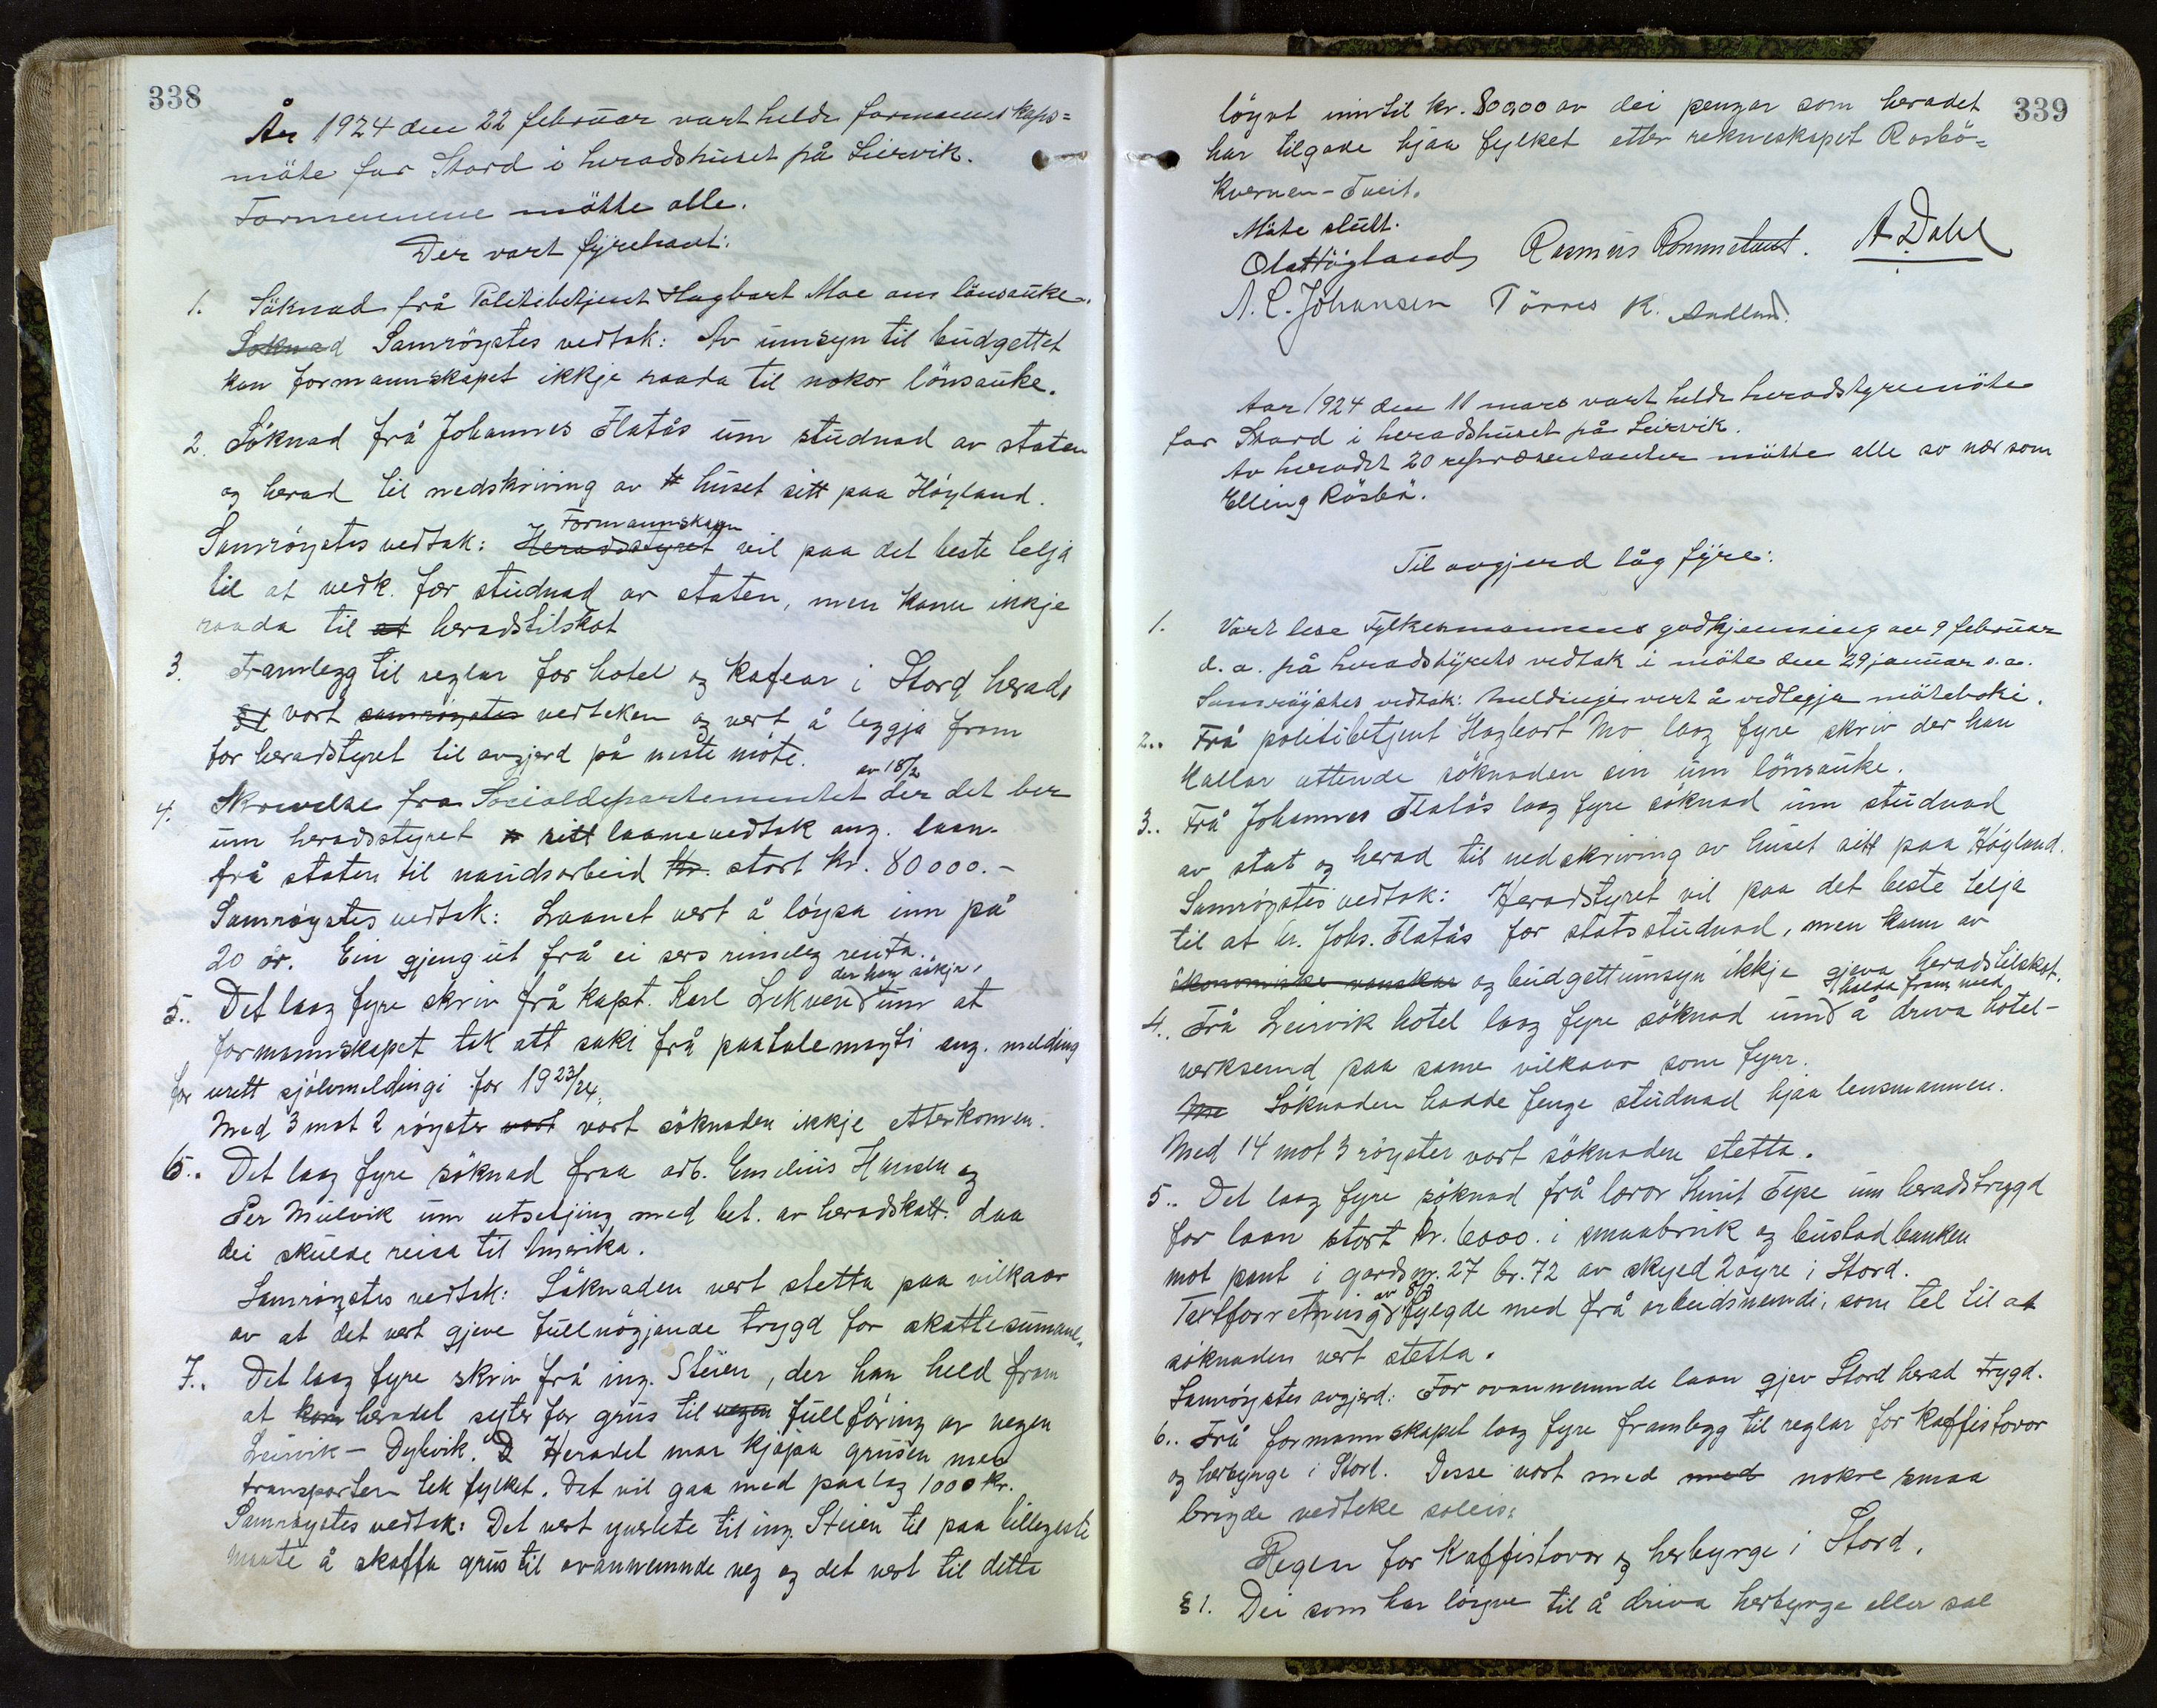 338
År 1924 den 22 februar vart helde formannskaps=
möte for Stord i heradshuset på Leirvik.
Formennene mötte alle.
Der vart fyrehavt:
1. Söknad frå Politibetjent Hagbart Moe om lönsauke.
Soknad Samröystes vedtak: Av umsyn til budgettet
kan formannskapet ikkje raada til nokor lönsauke.
2. Söknad frå Johannes Flatås um studnad av staten
og herad til nedskriving av huset sitt paa Höyland.
Formannskapet
Samröystes vedtak: Heradsstyret vil paa det beste telja
til at vedk. fær studnad av staten, men kann ikkje
raada til at heradstilskot
3. Framlegg til reglar for hotel og kafear i Stord herad
vart samröystes vedteken og vert å leggja fram
for heradstyret til avgjerd på neste möte.
av 18/2
4. Skrivelse fra Socialdepartementet der det ber
um heradsstyret sitt laanevedtak ang. laan
frå staten til naudsarbeid kr. stort kr. 80000.-
Samröystes vedtak: Laanet vert å löysa inn på
20 år. Ein gjeng ut frå ei sers rimeleg renta.
der han sökja,
5.. Det laag fyre skriv frå kapt. Karl Lekven um at
formannskapet tek att saki frå paatalemagti ang. melding
for urett sjölvmeldingi for 1923/24.
Med 3 mot 2 röyster vart vart söknaden ikkje etterkomen.
6.. Det laag fyre söknad fraa arb. Emelius Hansen og
Per Mulvik um utsetjing med bet. av heradskatt. daa
dei skulde reisa til Amerika.
Samröystes vedtak: Söknaden vert stetta paa vilkaar
av at det vert gjeve fullnögjande trygd for skattesumane.
7.. Det laag fyre skriv frå ing. Steien, der han held fram
at kom heradet syter for grus til vegen fullföring av vegen
Leirvik - Dybvik. D Heradet maa kjöpa grusen med
transporten tek fylket. Det vil gaa med paalag 1000 kr.
Samröystes vedtak: Det vert yverlete til ing. Steien til paa billegaste
maate å skaffa grus til ovannemnde veg og det vert til dette
339
löyvt inntil kr. 800,00 av dei pengar som heradet
har tilgode hjaa fylket etter rekneskapet Rosbö=
kvernen - Tveit.
Möte slutt.
Ola Höyland Rasmus Rommetveit. A Dahl
A. L. Johansen Törres K. Andlund.
Aar 1924 den 11 mars vart helde heradstyremöte
for Stord i heradshuset på Leirvik.
Av heradet 20 representanter mötte alle so nær som
Elling Rösbö.
Til avgjerd låg fyre:
1. Vart lese Fylkesmannens godkjenning av 9 februar
d. a. på heradstyrets vedtak i möte den 29 januar s. a.
Samröystes vedtak: Meldingi vert å vedleggja möteboki.
2.. Frå politibetjent Hagbart Mo laag fyre skriv der han
kallar attende söknaden sin um lönsauke.
3.. Frå Johannes Flatås laag fyre söknad um studnad
av stat og herad til nedskriving av huset sitt paa Höyland.
Samröystes vedtak: Heradstyret vil paa det beste telja
til at hr. Johs. Flatås fær statsstudnad, men kann av
ökonomiske vanskar og budgettumsyn ikkje gjeva heradstilskot.
halda fram med
4.. Frå Leirvik hotel laag fyre söknad um å driva hotel-
verksemd paa same vilkaar som fyrr.
Me Söknaden hadde fenge studnad hjaa lensmannen.
Med 14 mot 3 röyster vart söknaden stetta.
5.. Det laag fyre söknad frå lærar Knut Tepe um heradstrygd
for laan stort kr. 6000. i smaabruk og bustadbanken
mot pant i gardsnr. 27 br. 72 av skyld 2 öyre i Stord.
Takstforretning fylgde med frå arbeidsnemndi, som tel til at
söknaden vert stetta.
Samröystes avgjerd: For ovannemnde laan gjev Stord herad trygd.
6.. Frå formannskapet laag fyre framlegg til reglar for kaffistovor
og herbyrge i Stord. Desse vart med med nokre smaa
brigde vedteke soleis:
Reglar for kaffistovor og herbyrge i Stord.
§ 1. Dei som har löyve til å driva herbyrge eller sal